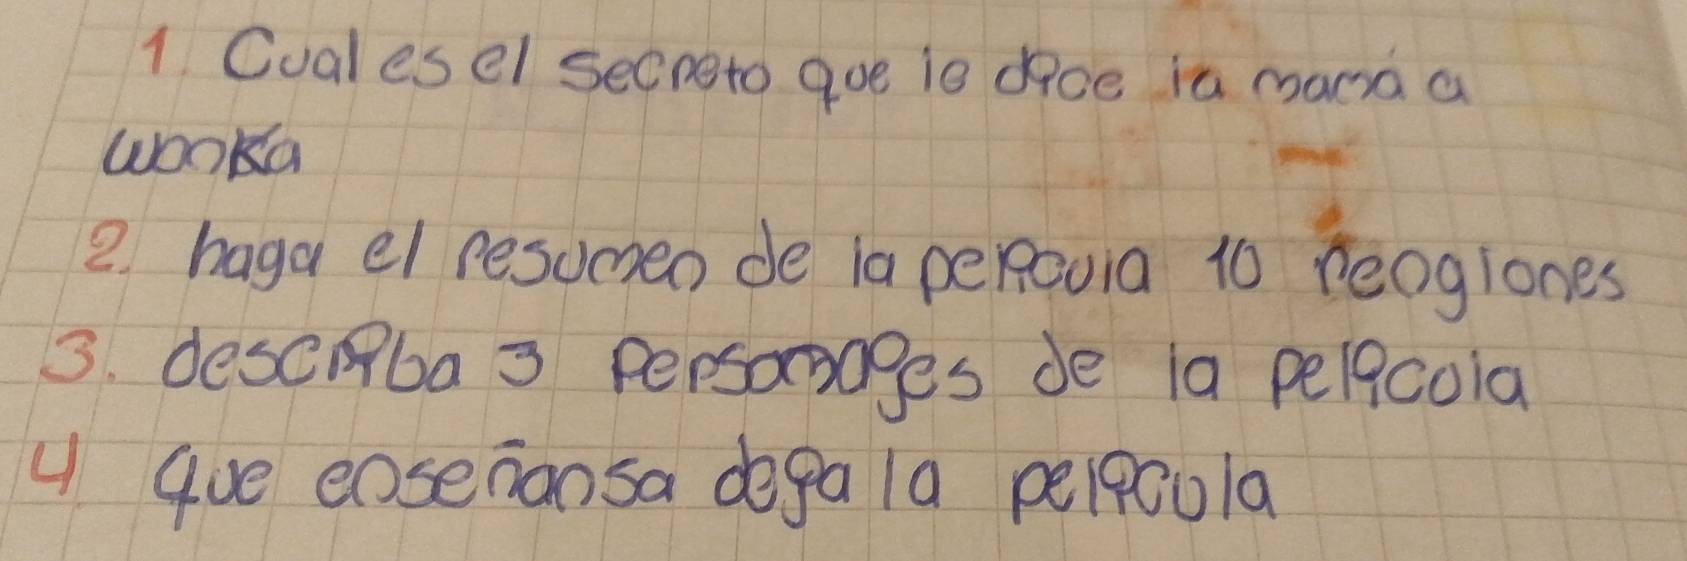 1. Cual es el secreto que le dice la mamá a
wonka
2. haga el resumen de la pelicula 10 reoglones
3. describa 3 personages de la pelicola
4 que enseñansa deja la pelicula